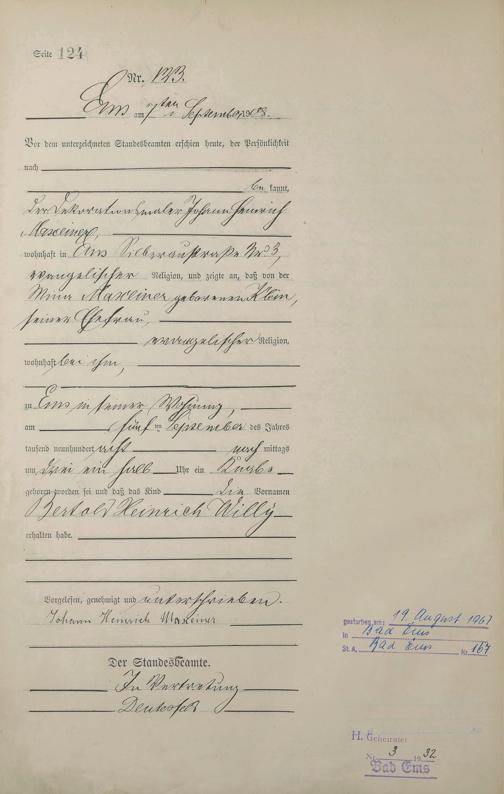 Seite 124
Nr. 123.
Ems am 7ten September 1908.
Vor dem unterzeichneten Standesbeamten erschien heute, der Persönlichkeit
nach
be kannt,
der Dekorationsmaler Johann Heinrich
Maxeiner,
wohnhaft in Ems Silberaustraße Nr. 3,
evangelischer Religion, und zeigte an, daß von der
Mina Maxeiner geborenen Klein,
seiner Ehefrau,
evangelischer Religion,
wohnhaft bei ihm,
zu Ems in seiner Wohnung,
am fünften September des Jahres
tausend neunhundert acht nach mittags
um drei ein halb Uhr ein Knabe
geboren worden sei und daß das Kind die Vornamen
Bertold Heinrich Willy
erhalten habe.
Vorgelesen, genehmigt und unterschrieben.
Johann Heinrich Maxeiner
Der Standesbeamte.
In Vertretung
gestorben am: 19 August 1967
in Bad Ems
St.A. Bad Ems Nr. 167
H. Geheiratet
Nr. 3 1932
Bad Ems